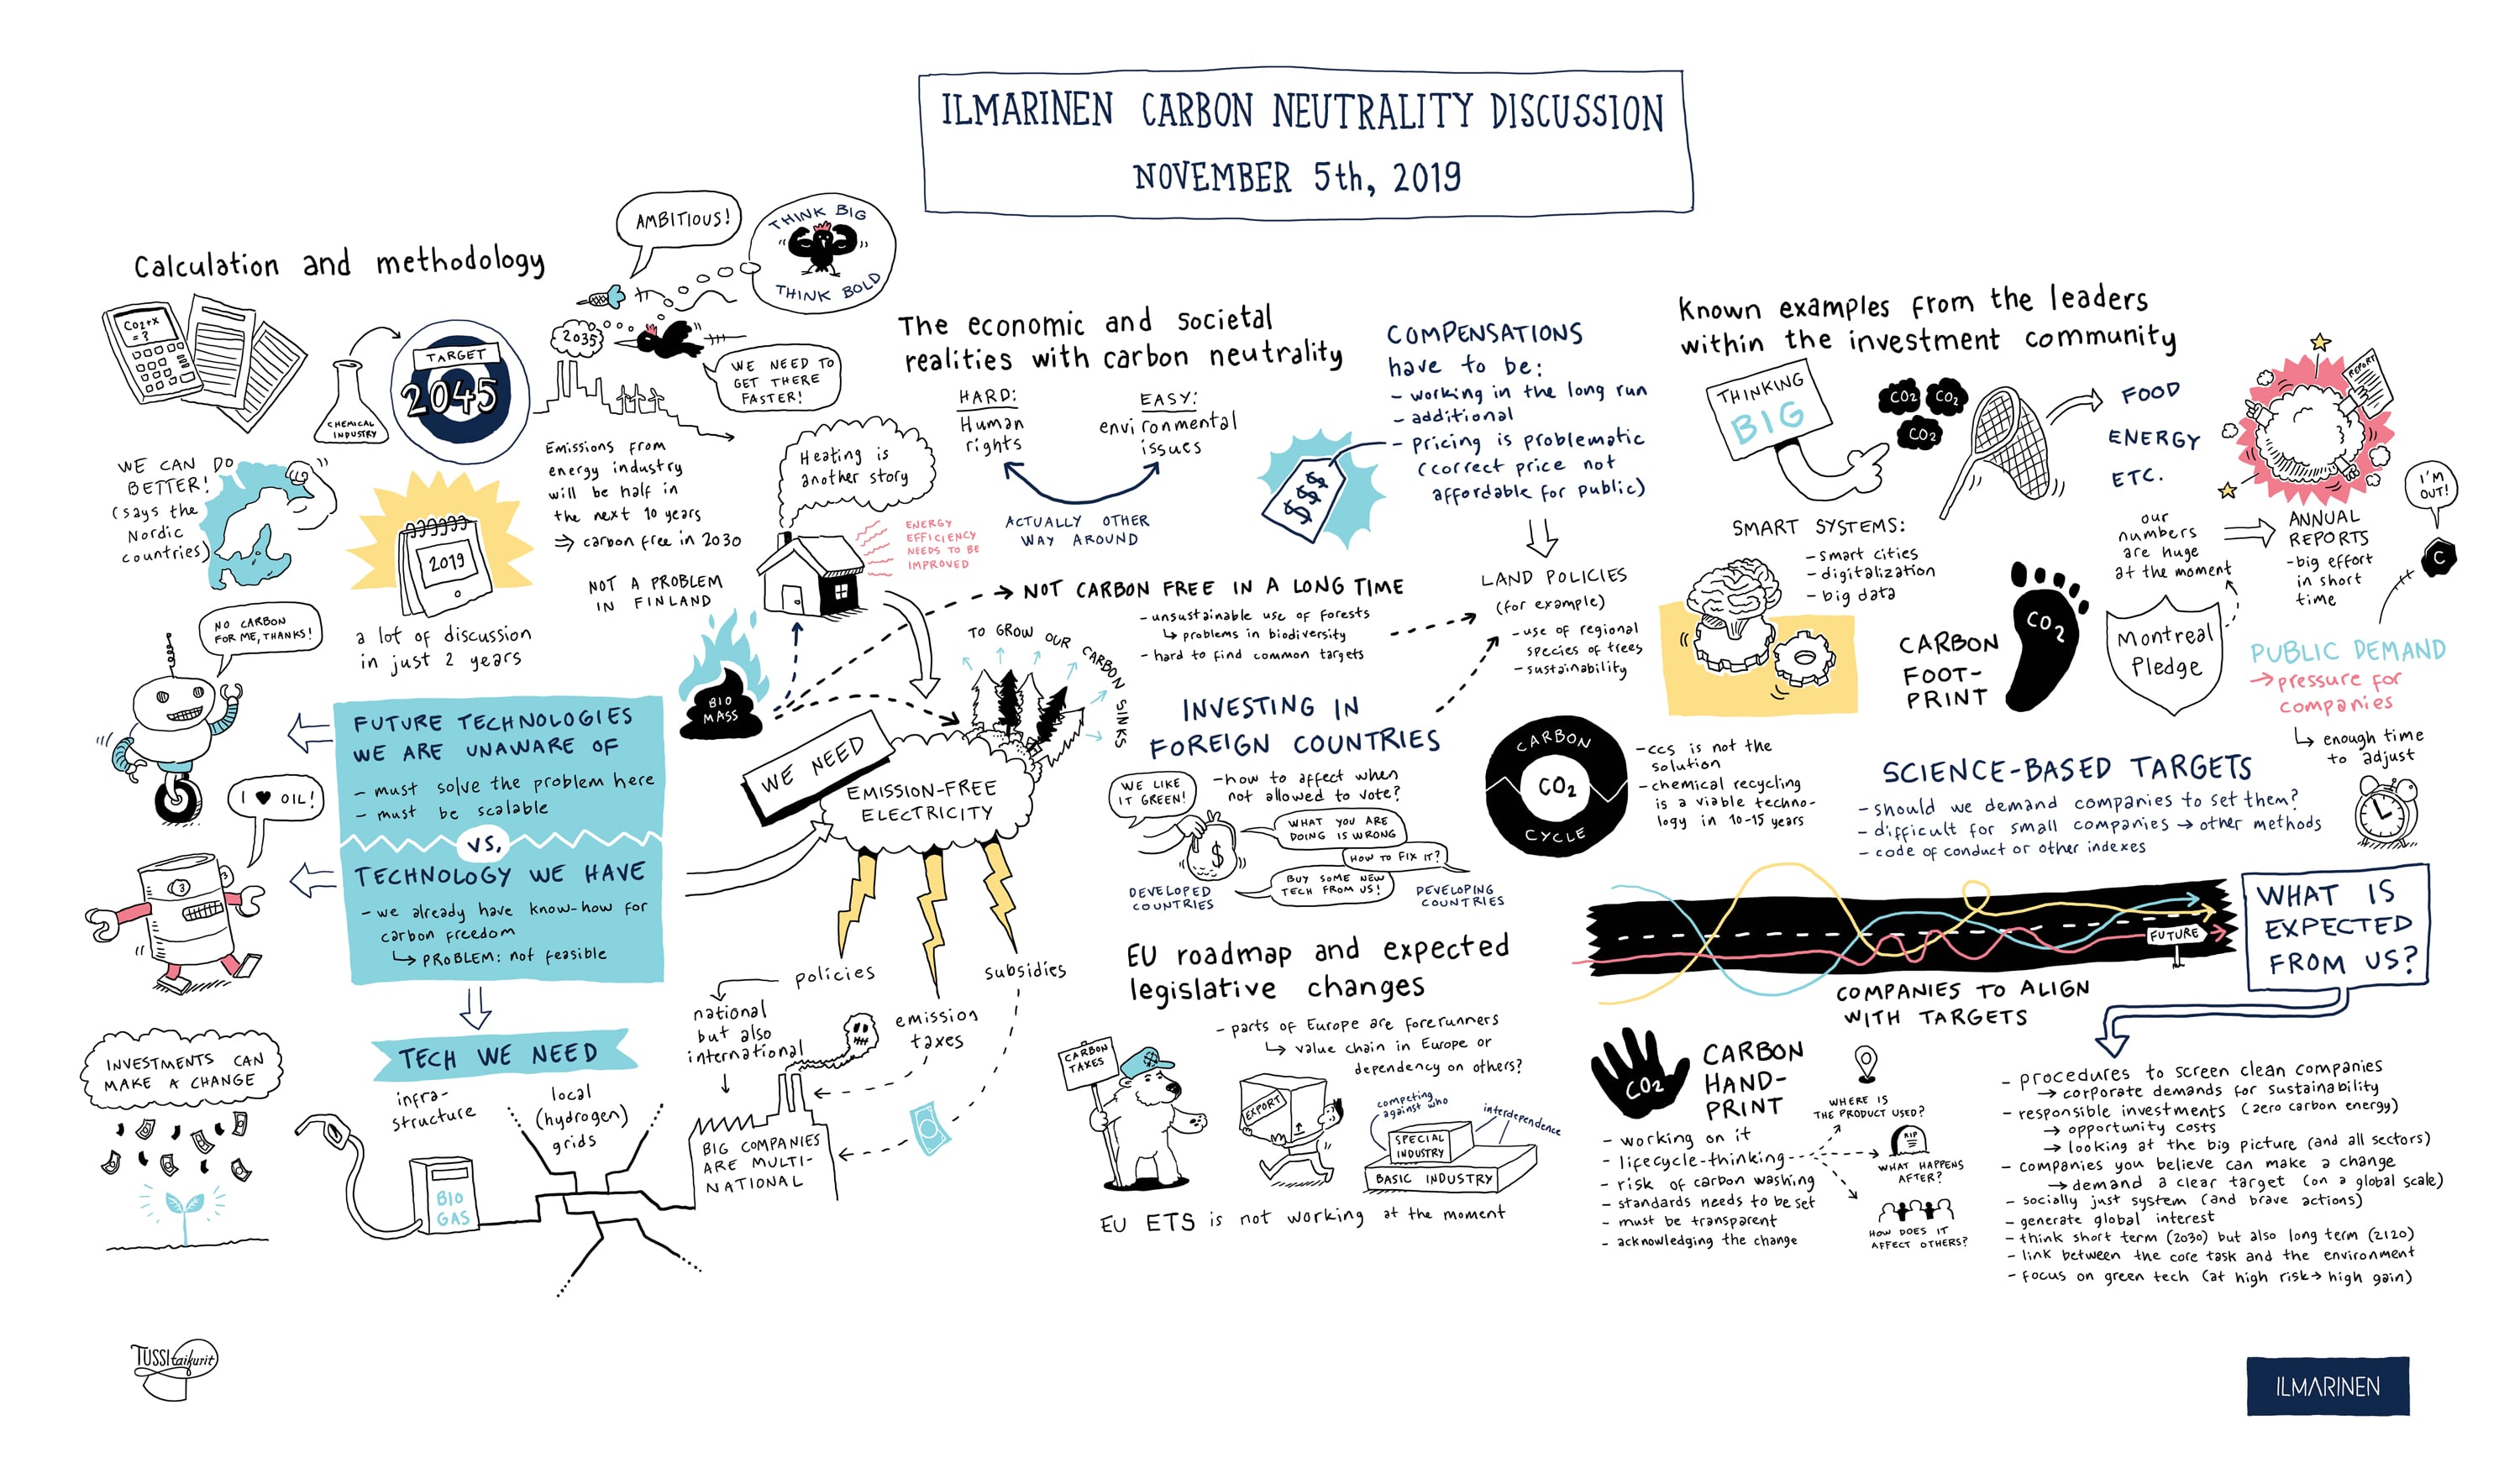 ILMARINEN CARBON NEUTRALITY DISCUSSION
NOVEMBER 5th, 2019
Calculation and methodology
CO2+X
= ?
CHEMICAL
INDUSTRY
TARGET
2045
AMBITIOUS!
THINK BIG
THINK BOLD
2035
WE NEED TO
GET THERE
FASTER!
WE CAN DO
BETTER!
(says the
Nordic
countries)
2019
a lot of discussion
in just 2 years
Emissions from
energy industry
will be half in
the next 10 years
⇒ carbon free in 2030
NOT A PROBLEM
IN FINLAND
Heating is
another story
ENERGY
EFFICIENCY
NEEDS TO BE
IMPROVED
BIO
MASS
NO CARBON
FOR ME, THANKS!
I ♥ OIL!
FUTURE TECHNOLOGIES
WE ARE UNAWARE OF
- must solve the problem here
- must be scalable
VS.
TECHNOLOGY WE HAVE
- we already have know-how for
carbon freedom
↳ PROBLEM: not feasible
TECH WE NEED
infra-
structure
local
(hydrogen)
grids
BIO
GAS
INVESTMENTS CAN
MAKE A CHANGE
WE NEED
EMISSION-FREE
ELECTRICITY
TO GROW OUR CARBON SINKS
policies
national
but also
international
emission
taxes
subsidies
BIG COMPANIES
ARE MULTI-
NATIONAL
The economic and societal
realities with carbon neutrality
HARD:
Human
rights
EASY:
environmental
issues
ACTUALLY OTHER
WAY AROUND
NOT CARBON FREE IN A LONG TIME
- unsustainable use of forests
↳ problems in biodiversity
- hard to find common targets
COMPENSATIONS
have to be:
- working in the long run
- additional
- pricing is problematic
(correct price not
affordable for public)
$$$
LAND POLICIES
(for example)
- use of regional
species of trees
- sustainability
INVESTING IN
FOREIGN COUNTRIES
- how to affect when
not allowed to vote?
WE LIKE
IT GREEN!
$
WHAT YOU ARE
DOING IS WRONG
HOW TO FIX IT?
BUY SOME NEW
TECH FROM US!
DEVELOPED
COUNTRIES
DEVELOPING
COUNTRIES
EU roadmap and expected
legislative changes
- parts of Europe are forerunners
↳ value chain in Europe or
dependency on others?
CARBON
TAXES
EXPORT
competing
against who
interdependence
SPECIAL
INDUSTRY
BASIC INDUSTRY
EU ETS is not working at the moment
Known examples from the leaders
within the investment community
THINKING
BIG
CO2
CO2
CO2
FOOD
ENERGY
ETC.
REPORT
SMART SYSTEMS:
- smart cities
- digitalization
- big data
CARBON
FOOT-
PRINT
CO2
our
numbers
are huge
at the moment
ANNUAL
REPORTS
- big effort
in short
time
Montreal
Pledge
I'M
OUT!
C
PUBLIC DEMAND
→ pressure for
companies
↳ enough time
to adjust
CARBON
CO2
CYCLE
- ccs is not the
solution
- chemical recycling
is a viable techno-
logy in 10-15 years
SCIENCE-BASED TARGETS
- should we demand companies to set them?
- difficult for small companies → other methods
- code of conduct or other indexes
FUTURE
COMPANIES TO ALIGN
WITH TARGETS
CO2
CARBON
HAND-
PRINT
- working on it
- lifecycle-thinking
- risk of carbon washing
- standards needs to be set
- must be transparent
- acknowledging the change
WHERE IS
THE PRODUCT USED?
RIP
WHAT HAPPENS
AFTER?
HOW DOES IT
AFFECT OTHERS?
WHAT IS
EXPECTED
FROM US?
- procedures to screen clean companies
→ corporate demands for sustainability
- responsible investments (zero carbon energy)
→ opportunity costs
→ looking at the big picture (and all sectors)
- companies you believe can make a change
→ demand a clear target (on a global scale)
- socially just system (and brave actions)
- generate global interest
- think short term (2030) but also long term (2120)
- link between the core task and the environment
- focus on green tech (at high risk → high gain)
TUSSItaikurit
ILMARINEN